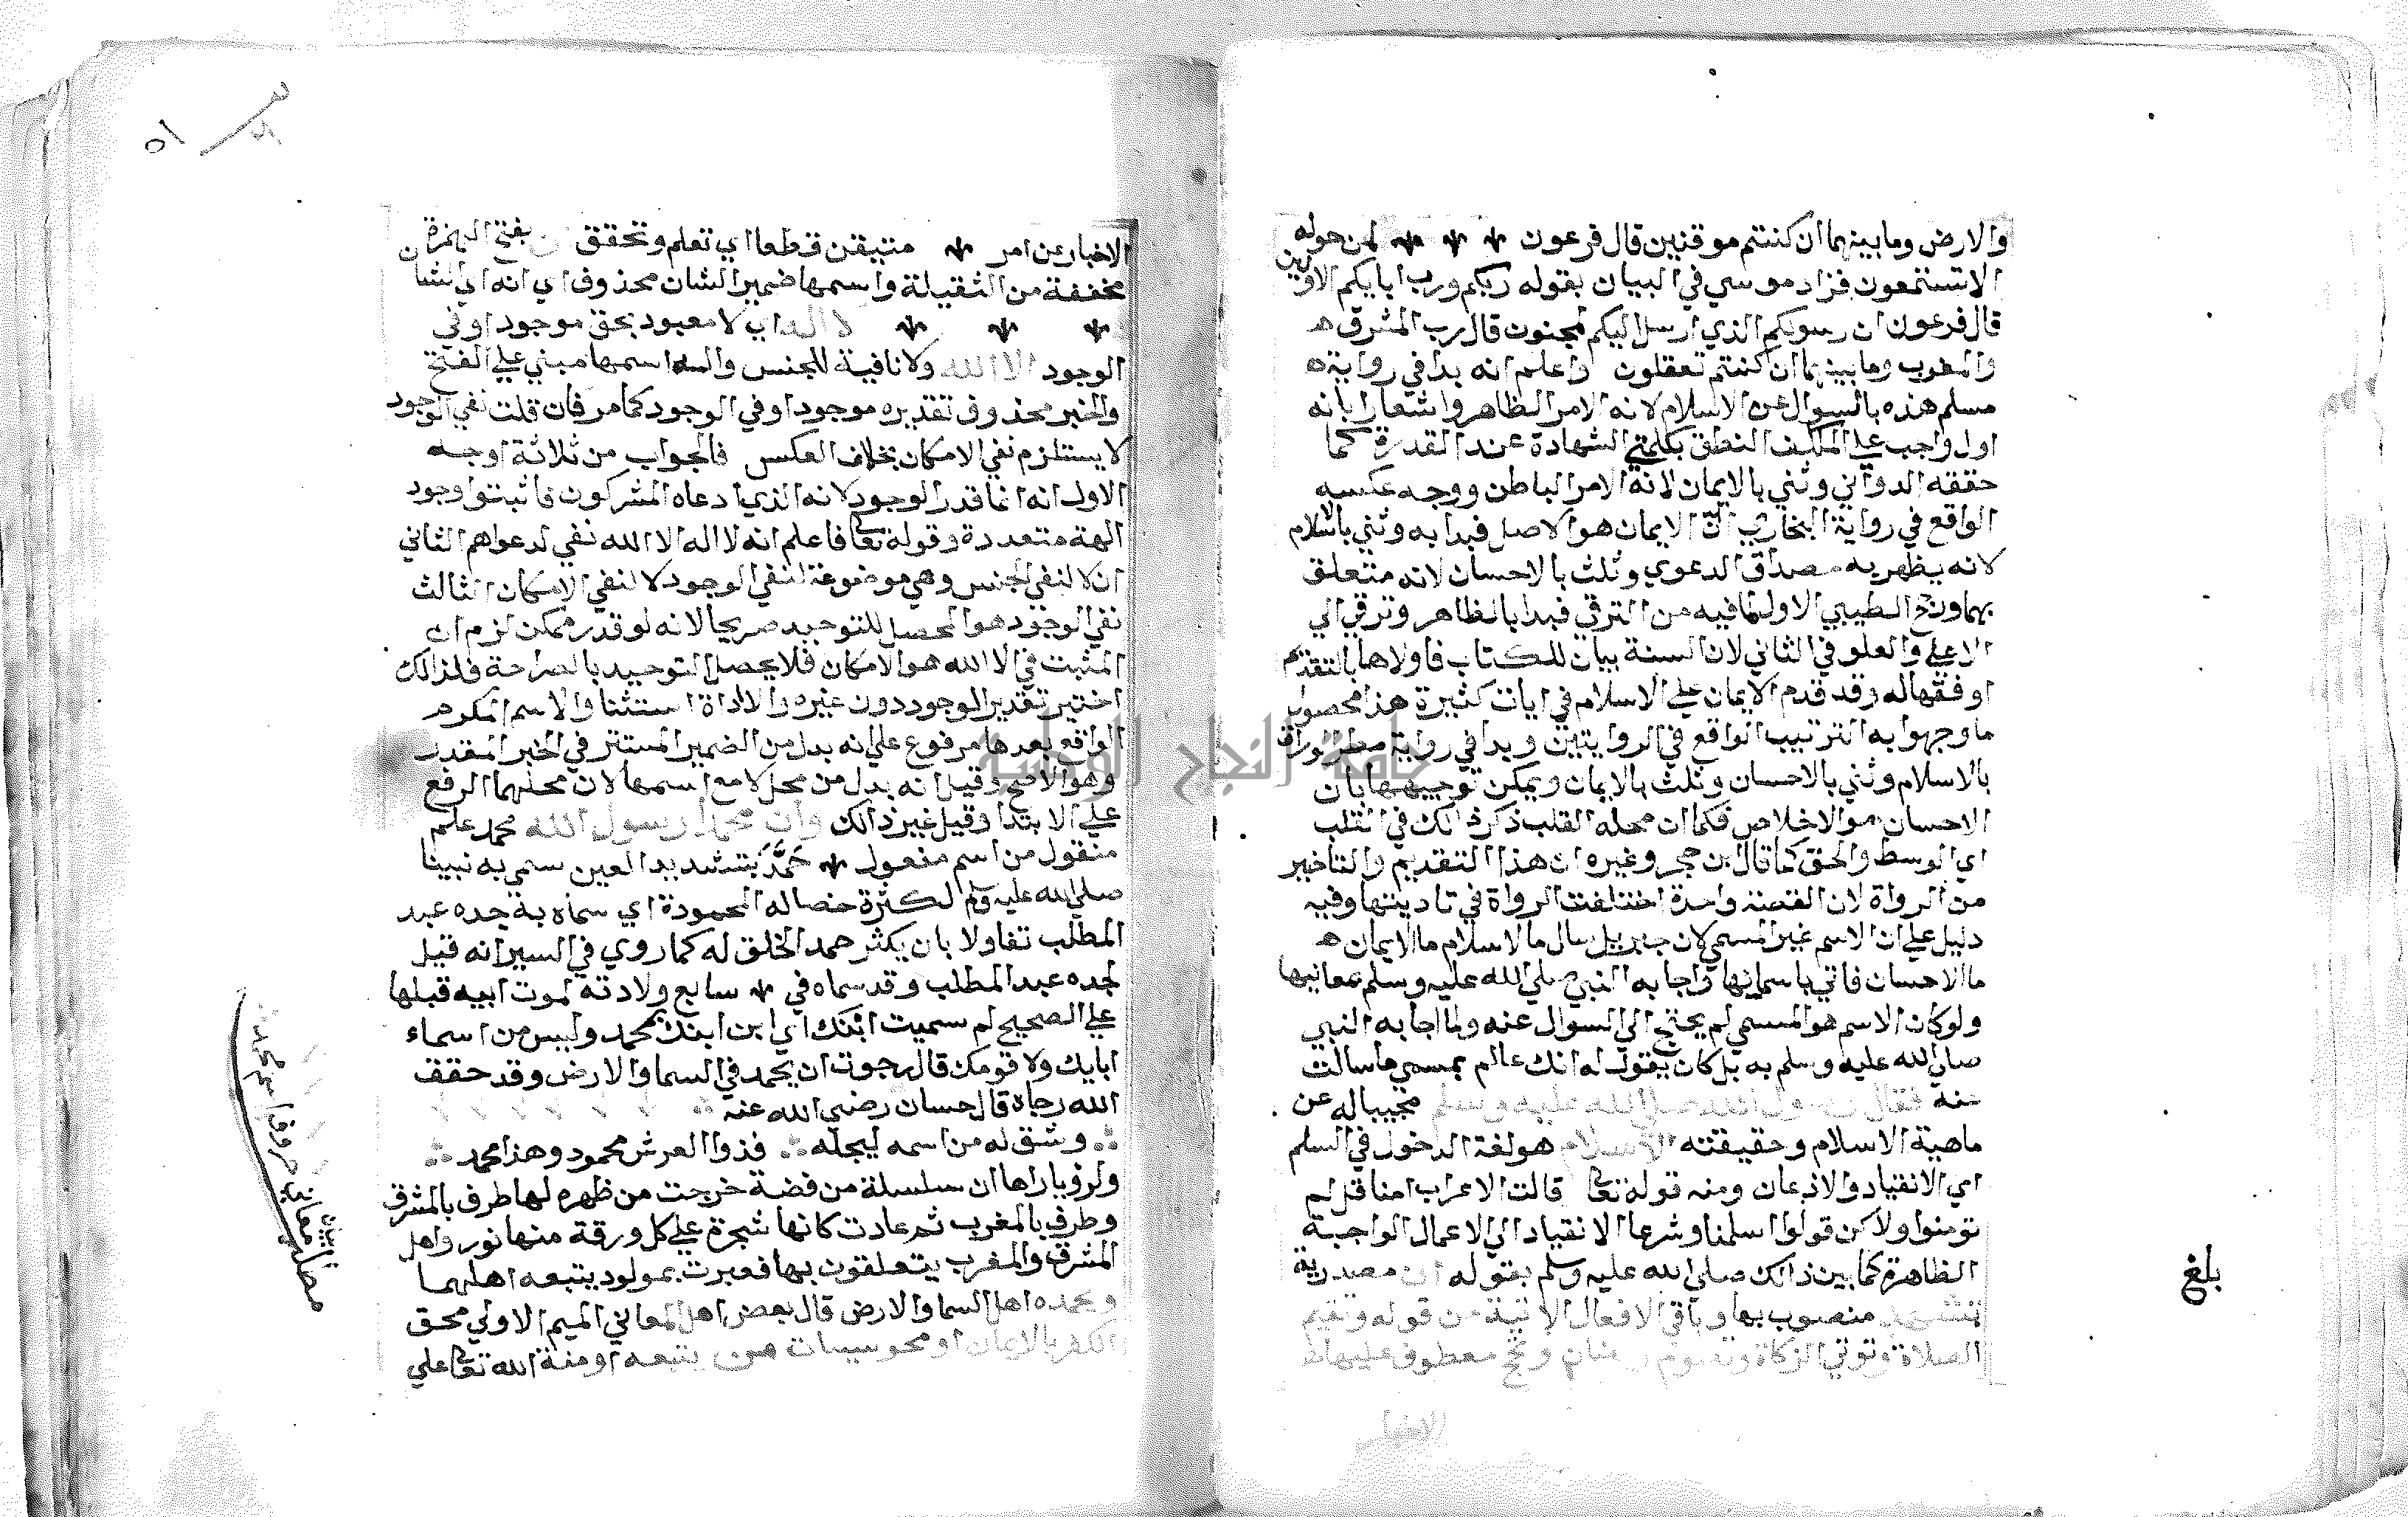 والارض وما بينهما ان كنتم موقنين قال فرعون لمن حوله
الا تستمعون فزاد موسي في البيان بقوله ربكم ورب ابايكم الاولين
قال فرعون ان رسولكم الذي ارسل اليكم لمجنون قال رب المشرق
والمغرب وما بينهما ان كنتم تعقلون واعلم انه بدا في رواية
مسلم هذه بالسوال عن الاسلام لانه الامر الظاهر واشعارا بانه
اول واجب علي المكلف النطق بكلمتي الشهادة عند القدرة كما
حققه الدواني وثني بالايمان لانه الامر الباطن ووجه عكسه
الواقع في رواية البخاري انّ الايمان هو الاصل فبدا به وثني بالاسلام
لانه يظهر به مصداق الدعوي وثلث بالاحسان لانه متعلق
بهما ورجح الطيبي الاول لما فيه من الترقي فبدا بالظاهر وترقي الي
الاعلي والعلو في الثاني لان السنة بيان للكتاب فاولاها بالتقدم
اوفقها له وقد قدم الايمان علي الاسلام في ايات كثيرة هذا محصول
ما وجهوا به الترتيب الواقع في الروايتين وبدا في رواية مطر الوراق
بالاسلام وثني بالاحسان وثلث بالايمان ويمكن توجيهها بان
الاحسان هو الاخلاص فكما ان محله القلب ذكر ذالك في القلب
اي الوسط والحق كما قال ابن حجر وغيره ان هذا التقديم والتاخير
من الرواة لان القصة واحدة اختلفت الرواة في تاديتها وفيه
دليل علي ان الاسم غير المسمي لان جبريل سال ما الاسلام ما الايمان
ما الاحسان فاتي باسمائها واجابه النبي صلي الله عليه وسلم بمعانيها
ولو كان الاسم هو المسمي لم يحتج الي السوال عنه ولما اجابه النبي
صلي الله عليه وسلم به بل كان يقول له انك عالم بمسمي ما سالت
عنه فقال رسول الله صلي الله عليه وسلم مجيبا له عن
ماهية الاسلام وحقيقته الاسلام هو لغة الدخول في السلم
اي الانقياد والاذعان ومنه قوله تعالي قالت الاعراب امنا قل لم
تومنوا ولاكن قولوا اسلمنا وشرعا الانقياد الي الاعمال الواجبة
الظاهرة كما بين ذالك صلي الله عليه وسلم بقوله ان مصدرية
تشهد منصوب بها وباقي الافعال الاتية من قوله وتقيم
الصلاة وتوتي الزكاة وتصوم رمضان وتحج معطوف عليها
بلغ
الاخبار عن امر متيقن قطعا اي تعلم وتحقق ان بفتح الهمزة
مخففة من الثقيلة واسمها ضمير الشان محذوف اي انه اي الشا
لا اله اي لا معبود بحق موجود او في
الوجود الا الله ولا نافية للجنس واله اسمها مبني علي الفتح
والخبر محذوف تقديره موجود او في الوجود كما مر فان قلت نفي الوجود
لا يستلزم نفي الامكان بخلاف العكس فالجواب من ثلاثة اوجه
الاول انه انما قدر الوجود لانه الذي ادعاه المشركون فاثبتوا وجود
الهة متعددة وقوله تعالي فاعلم انه لا اله الا الله نفي لدعواهم الثاني
ان لا لنفي الجنس وهي موضوعة لنفي الوجود لا لنفي الامكان الثالث
نفي الوجود هو المحصل للتوحيد صريحا لانه لو قدر ممكن لزم ان
المثبت في الا الله هو الامكان فلا يحصل التوحيد بالصراحة فلذالك
اختير تقدير الوجود دون غيره والا اداة استثنا والاسم المكرم
الواقع بعدها مرفوع علي انه بدل من الضمير المستتر في الخبر المقدر
وهو الاصح وقيل انه بدل من محل لا مع اسمها لان محلهما الرفع
علي الابتدا وقيل غير ذالك وان محمدا رسول الله محمد علم
منقول من اسم مفعول حَمَّدَ بتشديد العين سمي به نبينا
صلي الله عليه وسلم لكثرة خصاله المحمودة اي سماه به جده عبد
المطلب تفاولا بان يكثر حمد الخلق له كما روي في السير انه قيل
لجده عبد المطلب وقد سماه في سابع ولادته لموت ابيه قبلها
علي الصحيح لم سميت ابنك اي ابن ابنك بمحمد وليس من اسماء
ابايك ولا قومك قال رجوت ان يحمد في السما والارض وقد حقق
الله رجاه قال حسان رضي الله عنه
وشق له من اسمه ليجله فذوا العرش محمود وهذا محمد
ولرؤيا راها ان سلسلة من فضة خرجت من ظهره لها طرف بالمشرق
وطرف بالمغرب ثم عادت كانها شجرة علي كل ورقة منها نور واهل
المشرق والمغرب يتعلقون بها فعبرت بمولود يتبعه اهلهما
ويحمده اهل السما والارض قال بعض اهل المعاني الميم الاولي محق
الكفر بالايمان او محو سيات من يتبعه او منة الله تعالي علي